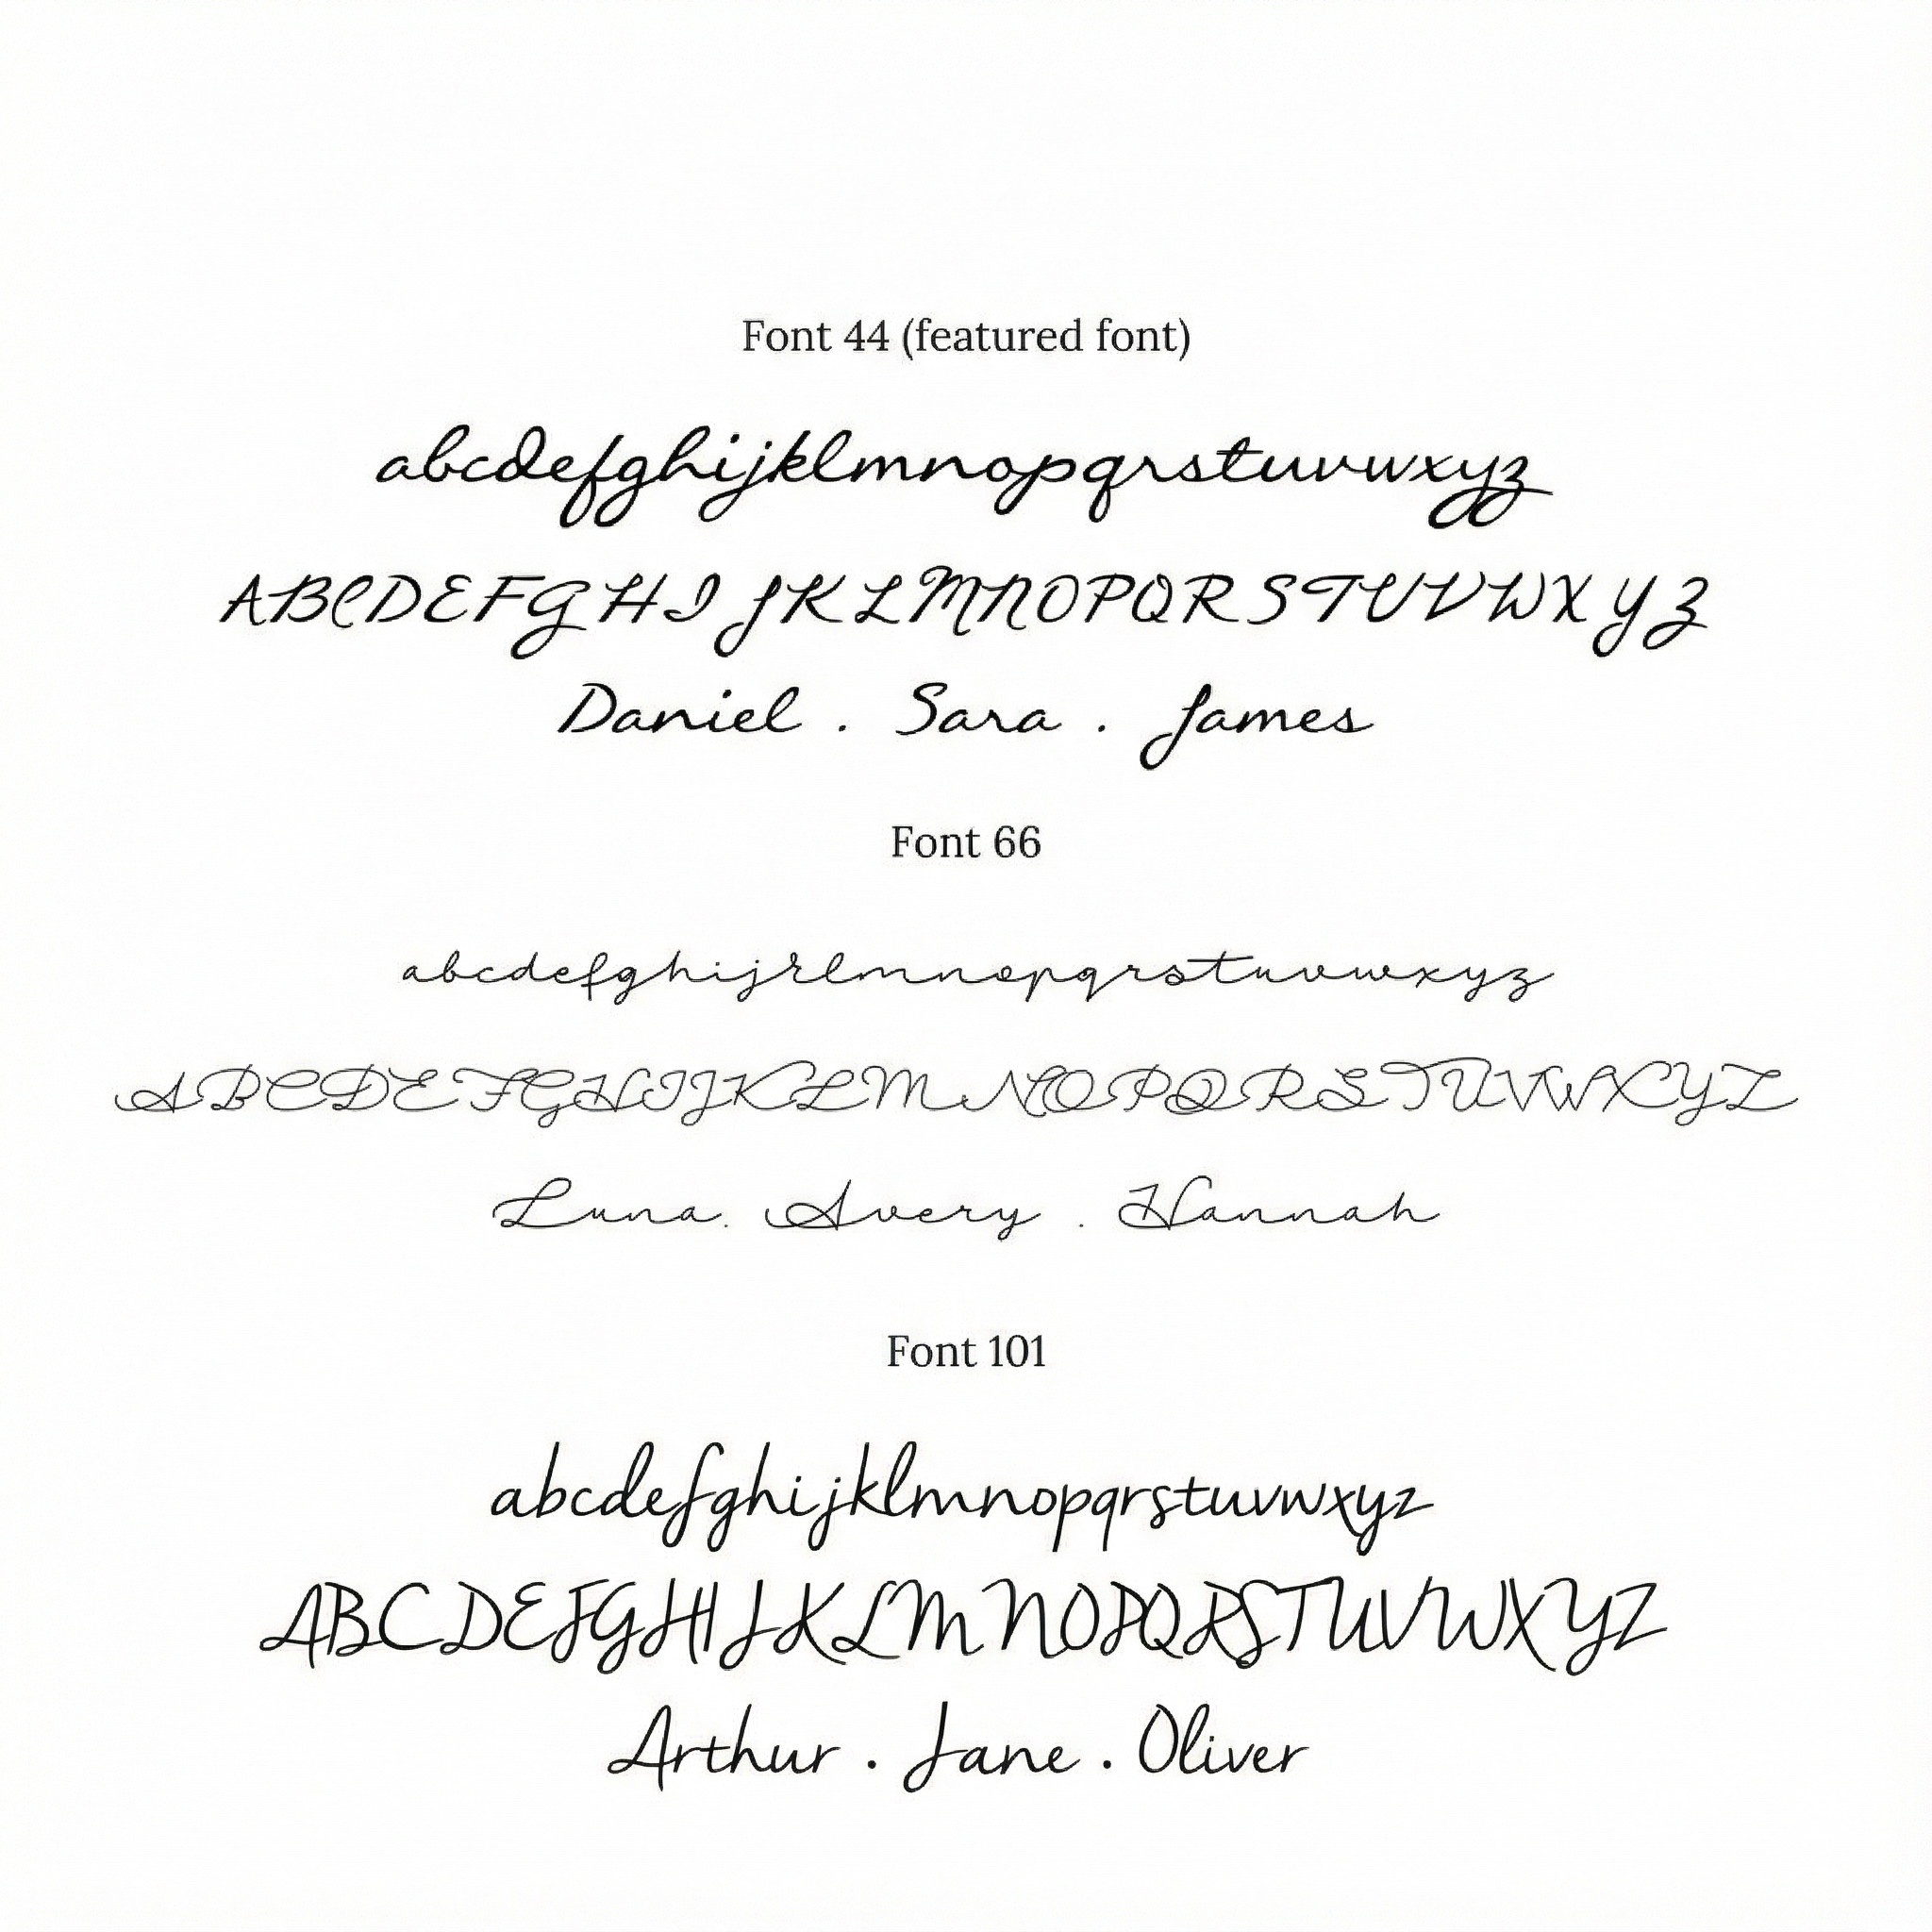 Font 44 (featured font)
abcdefghijklmnopqrstuvwxyz
ABCDEFGHIJKLMNOPQRSTUVWXYZ
Daniel . Sara . James
Font 66
abcdefghijklmnopqrstuvwxyz
ABCDEFGHIJKLMNOPQRSTUVWXYZ
Luna . Avery . Hannah
Font 101
abcdefghijklmnopqrstuvwxyz
ABCDEFGHIJKLMNOPQRSTUVWXYZ
Arthur . Jane . Oliver